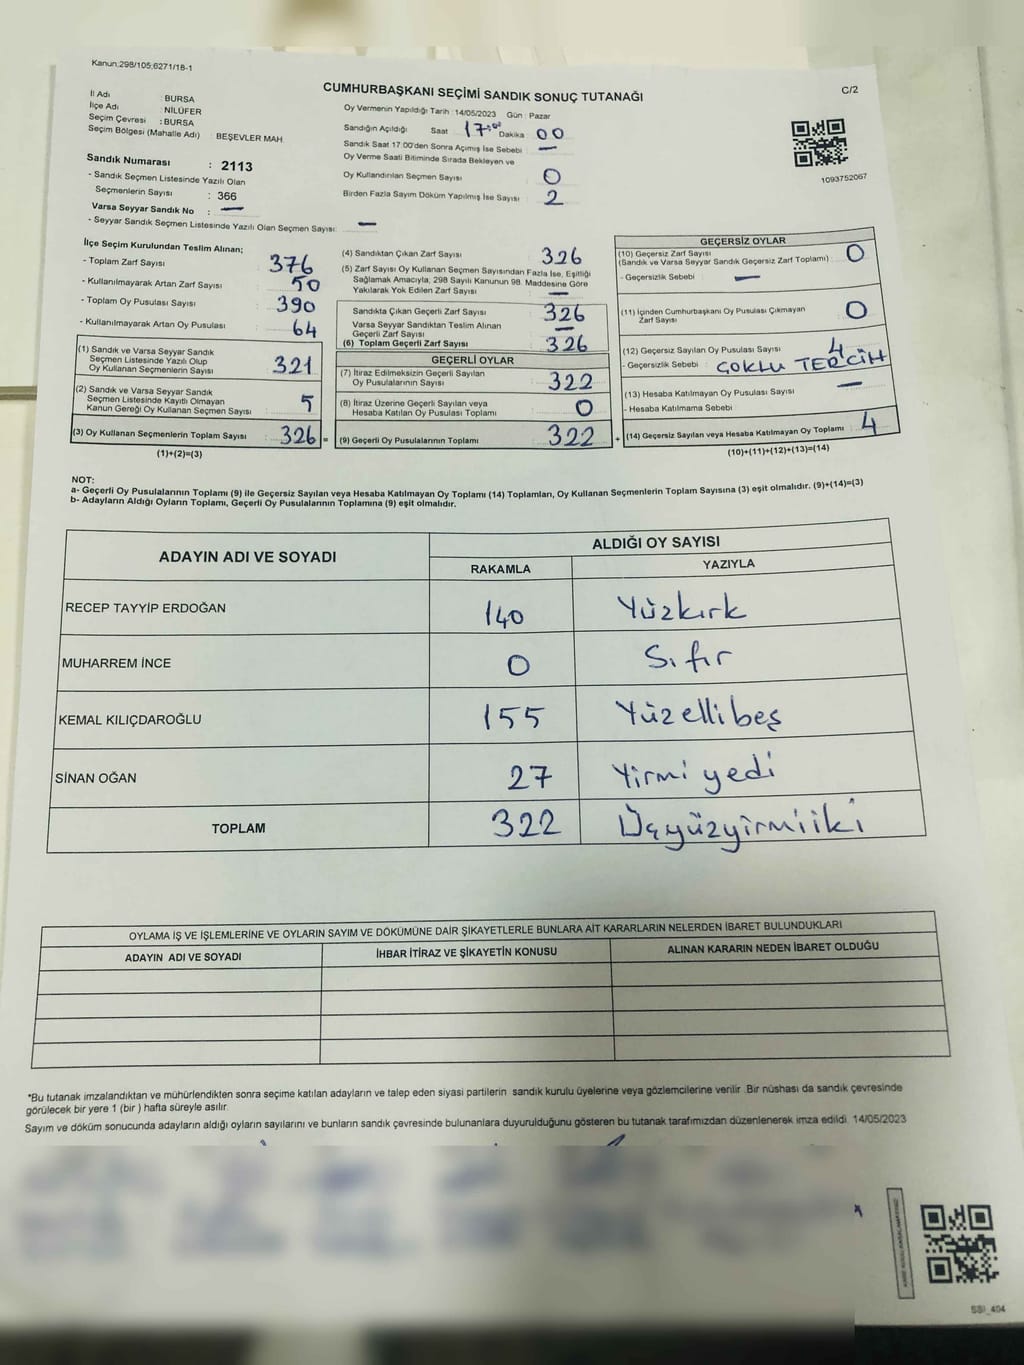 Kanun:298/105;6271/18-1
CUMHURBAŞKANI SEÇİMİ SANDIK SONUÇ TUTANAĞI
C/2
İl Adı : BURSA
İlçe Adı : NİLÜFER
Seçim Çevresi : BURSA
Seçim Bölgesi (Mahalle Adı) : BEŞEVLER MAH.
Sandık Numarası : 2113
- Sandık Seçmen Listesinde Yazılı Olan
Seçmenlerin Sayısı : 366
Varsa Seyyar Sandık No : —
- Seyyar Sandık Seçmen Listesinde Yazılı Olan Seçmen Sayısı: —
Oy Vermenin Yapıldığı Tarih :14/05/2023 Gün : Pazar
Sandığın Açıldığı Saat 17:00 Dakika 00
Sandık Saat 17:00'den Sonra Açımış İse Sebebi : —
Oy Verme Saati Bitiminde Sırada Bekleyen ve
Oy Kullandırılan Seçmen Sayısı : 0
Birden Fazla Sayım Döküm Yapılmış İse Sayısı : 2
1093752067
İlçe Seçim Kurulundan Teslim Alınan;
- Toplam Zarf Sayısı : 376
- Kullanılmayarak Artan Zarf Sayısı : 50
- Toplam Oy Pusulası Sayısı : 390
- Kullanılmayarak Artan Oy Pusulası : 64
(1) Sandık ve Varsa Seyyar Sandık
Seçmen Listesinde Yazılı Olup
Oy Kullanan Seçmenlerin Sayısı : 321
(2) Sandık ve Varsa Seyyar Sandık
Seçmen Listesinde Kayıtlı Olmayan
Kanun Gereği Oy Kullanan Seçmen Sayısı : 5
(3) Oy Kullanan Seçmenlerin Toplam Sayısı : 326 =
(1)+(2)=(3)
(4) Sandıktan Çıkan Zarf Sayısı : 326
(5) Zarf Sayısı Oy Kullanan Seçmen Sayısından Fazla İse, Eşitliği
Sağlamak Amacıyla; 298 Sayılı Kanunun 98. Maddesine Göre
Yakılarak Yok Edilen Zarf Sayısı : —
Sandıkta Çıkan Geçerli Zarf Sayısı : 326
Varsa Seyyar Sandıktan Teslim Alınan
Geçerli Zarf Sayısı : —
(6) Toplam Geçerli Zarf Sayısı : 326
GEÇERLİ OYLAR
(7) İtiraz Edilmeksizin Geçerli Sayılan
Oy Pusulalarının Sayısı : 322
(8) İtiraz Üzerine Geçerli Sayılan veya
Hesaba Katılan Oy Pusulası Toplamı : 0
(9) Geçerli Oy Pusulalarının Toplamı : 322 +
GEÇERSİZ OYLAR
(10) Geçersiz Zarf Sayısı
(Sandık ve Varsa Seyyar Sandık Geçersiz Zarf Toplamı) : 0
- Geçersizlik Sebebi : —
(11) İçinden Cumhurbaşkanı Oy Pusulası Çıkmayan
Zarf Sayısı : 0
(12) Geçersiz Sayılan Oy Pusulası Sayısı : 4
- Geçersizlik Sebebi : ÇOKLU TERCİH
(13) Hesaba Katılmayan Oy Pusulası Sayısı : —
- Hesaba Katılmama Sebebi
(14) Geçersiz Sayılan veya Hesaba Katılmayan Oy Toplamı : 4
(10)+(11)+(12)+(13)=(14)
NOT:
a- Geçerli Oy Pusulalarının Toplamı (9) ile Geçersiz Sayılan veya Hesaba Katılmayan Oy Toplamı (14) Toplamları, Oy Kullanan Seçmenlerin Toplam Sayısına (3) eşit olmalıdır. (9)+(14)=(3)
b- Adayların Aldığı Oyların Toplamı, Geçerli Oy Pusulalarının Toplamına (9) eşit olmalıdır.
ADAYIN ADI VE SOYADI
ALDIĞI OY SAYISI
RAKAMLA YAZIYLA
RECEP TAYYİP ERDOĞAN 140 Yüzkırk
MUHARREM İNCE 0 Sıfır
KEMAL KILIÇDAROĞLU 155 Yüzellibeş
SİNAN OĞAN 27 Yirmi yedi
TOPLAM 322 Üçyüzyirmiiki
OYLAMA İŞ VE İŞLEMLERİNE VE OYLARIN SAYIM VE DÖKÜMÜNE DAİR ŞİKAYETLERLE BUNLARA AİT KARARLARIN NELERDEN İBARET BULUNDUKLARI
ADAYIN ADI VE SOYADI İHBAR İTİRAZ VE ŞİKAYETİN KONUSU ALINAN KARARIN NEDEN İBARET OLDUĞU
*Bu tutanak imzalandıktan ve mühürlendikten sonra seçime katılan adayların ve talep eden siyasi partilerin sandık kurulu üyelerine veya gözlemcilerine verilir. Bir nüshası da sandık çevresinde
görülecek bir yere 1 (bir ) hafta süreyle asılır.
Sayım ve döküm sonucunda adayların aldığı oyların sayılarını ve bunların sandık çevresinde bulunanlara duyurulduğunu gösteren bu tutanak tarafımızdan düzenlenerek imza edildi. 14/05/2023
SSI_404